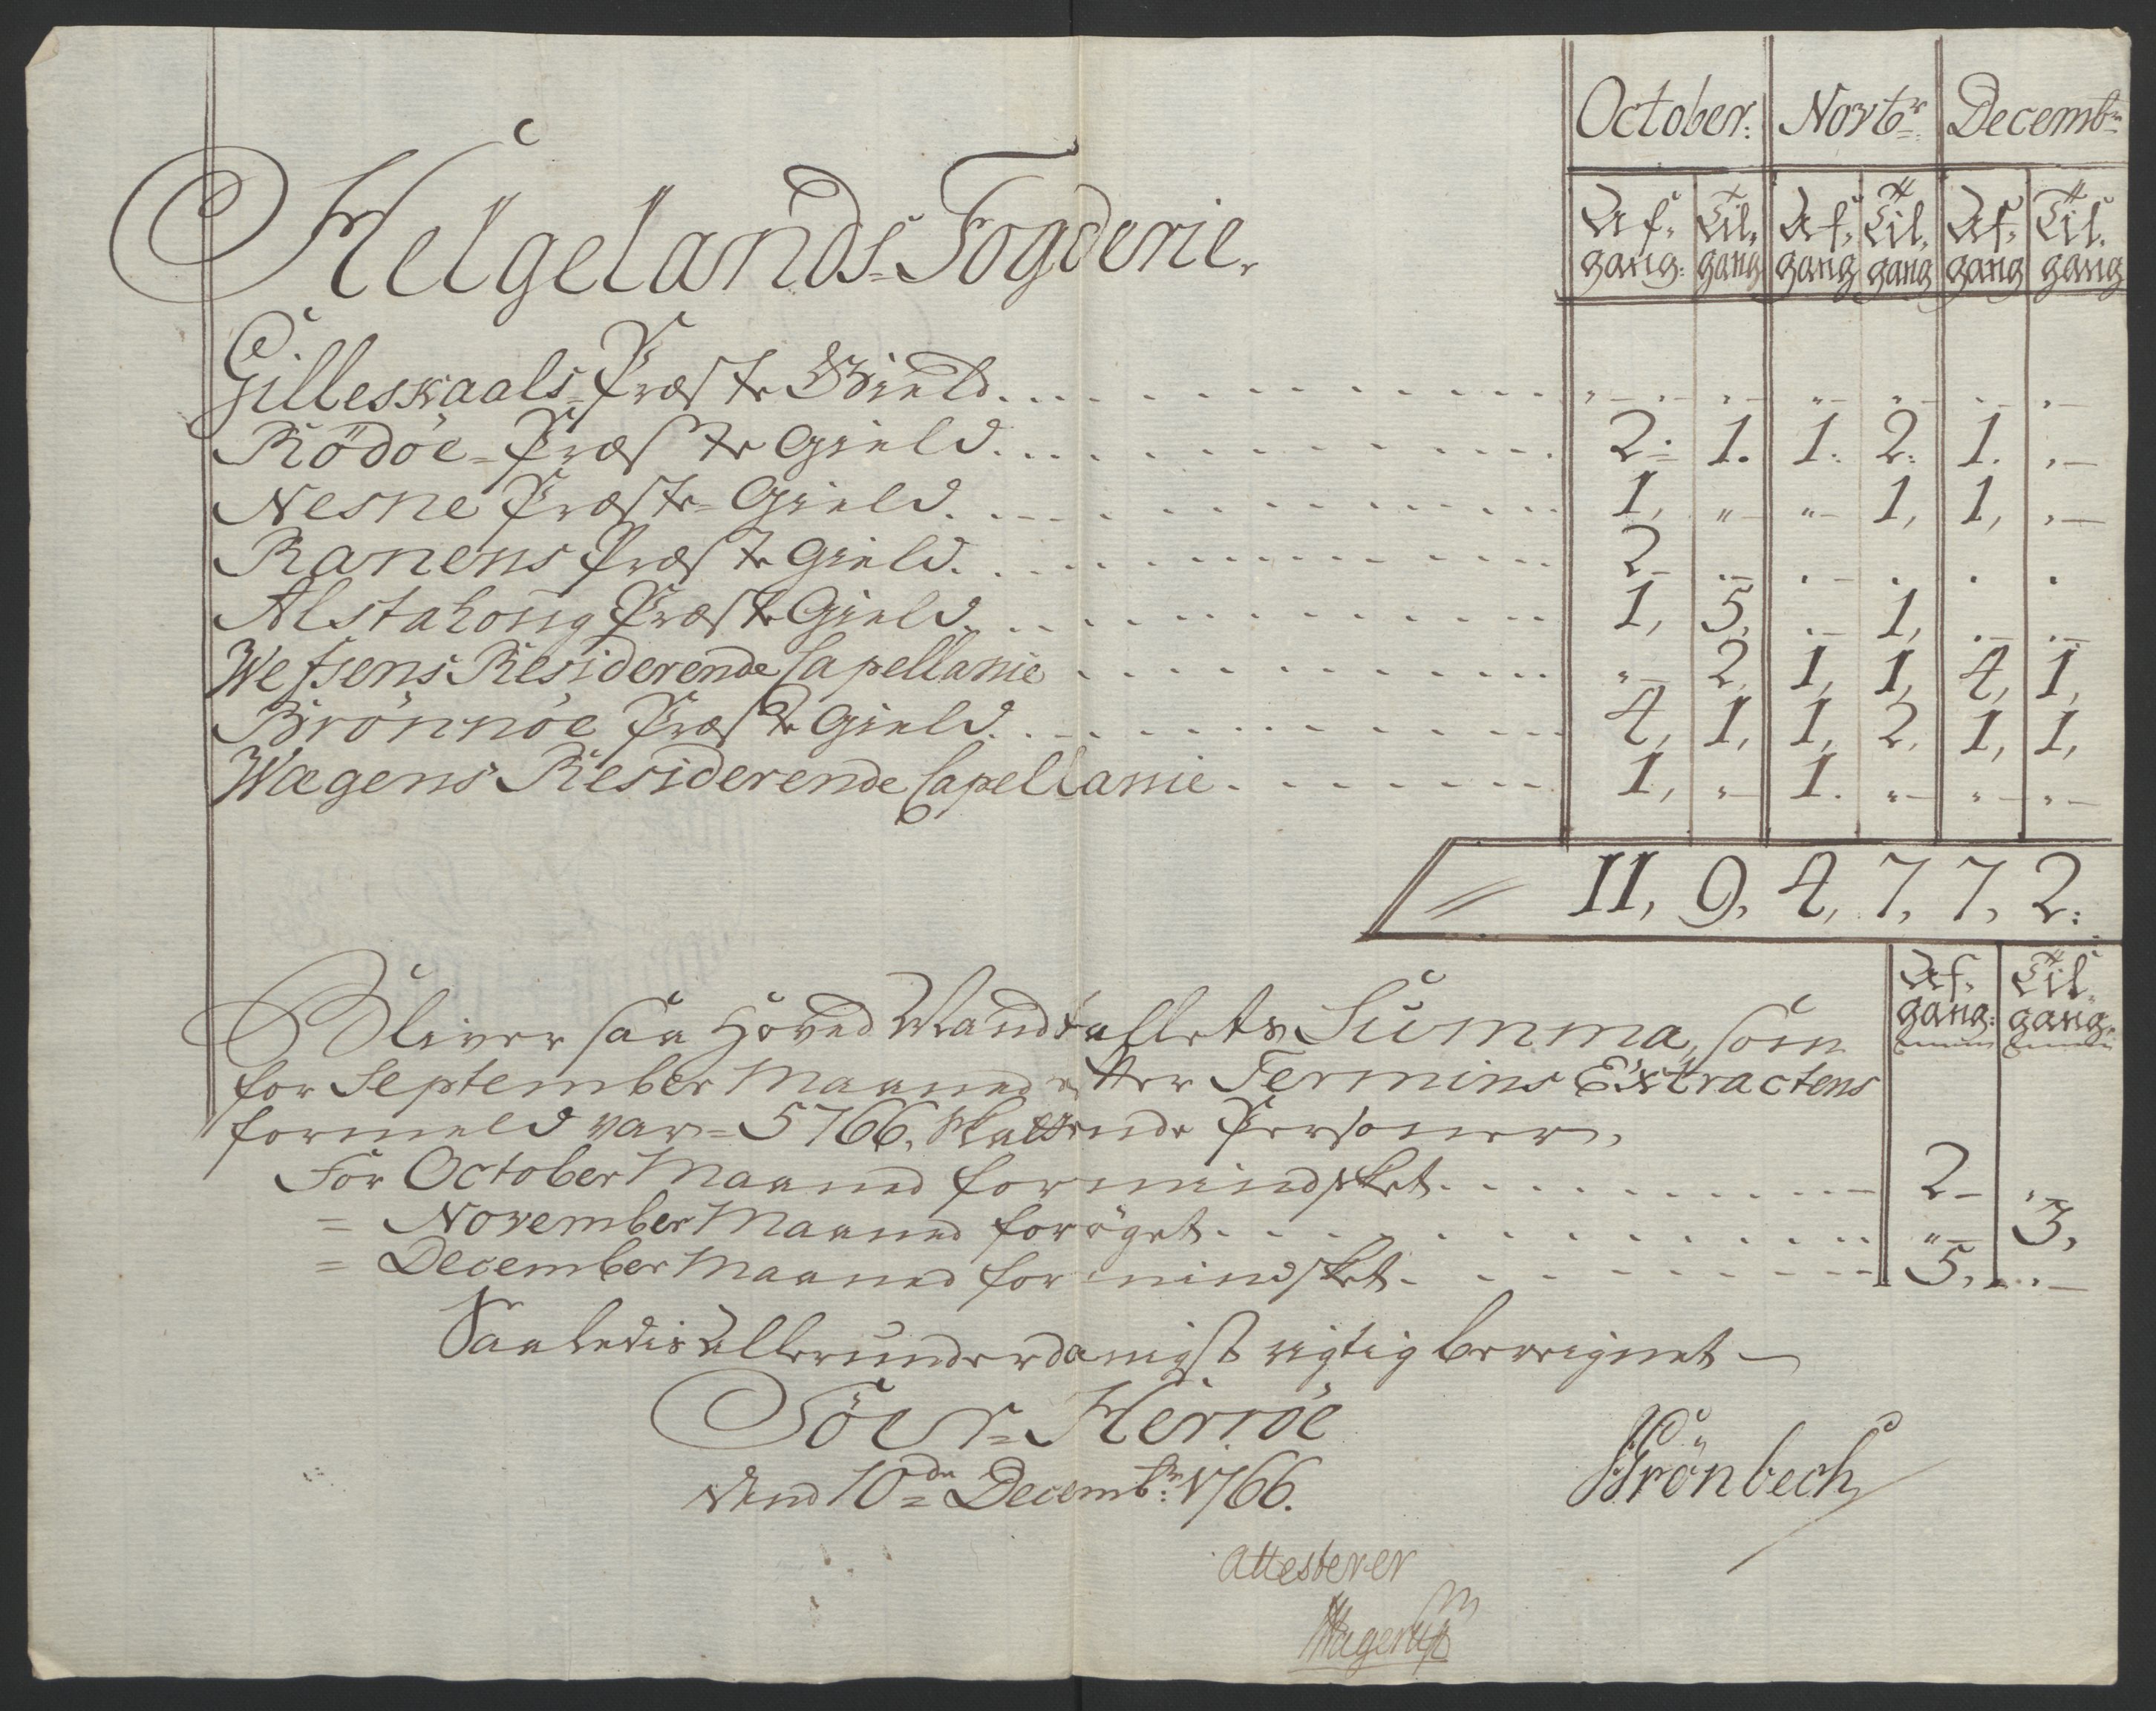 October. Novbr Decembr
Af- Til- Af- Til- Af- Til-
gang. gang gang gang gang gang
Helgelands-Fogderie,
Gilleskaals-Præste Gield. „ „ „ „ „ „
Rödöe-Præste Gield. 2. 1. 1. 2. 1. „
Nesne Præste-Gield. 1, „ „ 1, 1, „
Ranens Præste Gield. 2 „ „ „ „ „
Alstahoug Præste Gield. 1, 5, „ 1, „ „
Wefsens Residerende Capellanie „ 2, 1, 1, 4, 1,
Brönnöe Præste Gield. 4, 1, 1, 2, 1, 1,
Wægens Residerende Capellanie. 1, „ 1. „ „ „
11, 9, 4, 7, 7, 2.
Af- Til-
gang. gang.
Bliver saa Hoved Mandtallets Summa, som
for September Maaned efter Termins Extractens
formeld var= 5766. Skattende Personer,
For October Maaned formindsket. 2 „
= November Maaned foröget. „ 3,
= December Maaned formindsket. 5, „
Saaledis allerunderdanigst rigtig beregnet
Söer-Herröe
dend 10de Decembr: 1766.
Grönbech
Attesterer
Hagerup